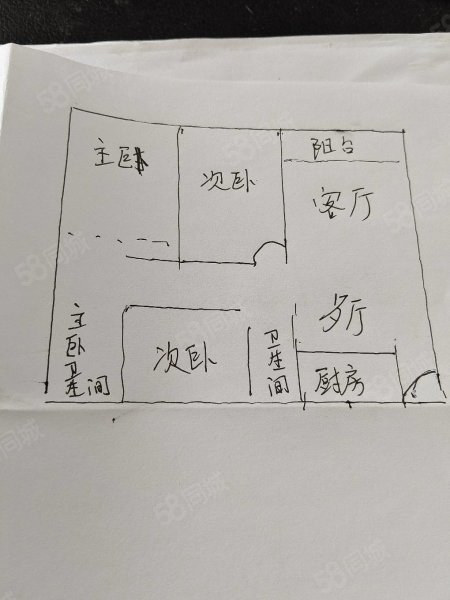 主卧
次卧
阳台
客厅
主卧卫生间
次卧
卫生间
多厅
厨房
58同城
58同城
58同城
58同城
58同城